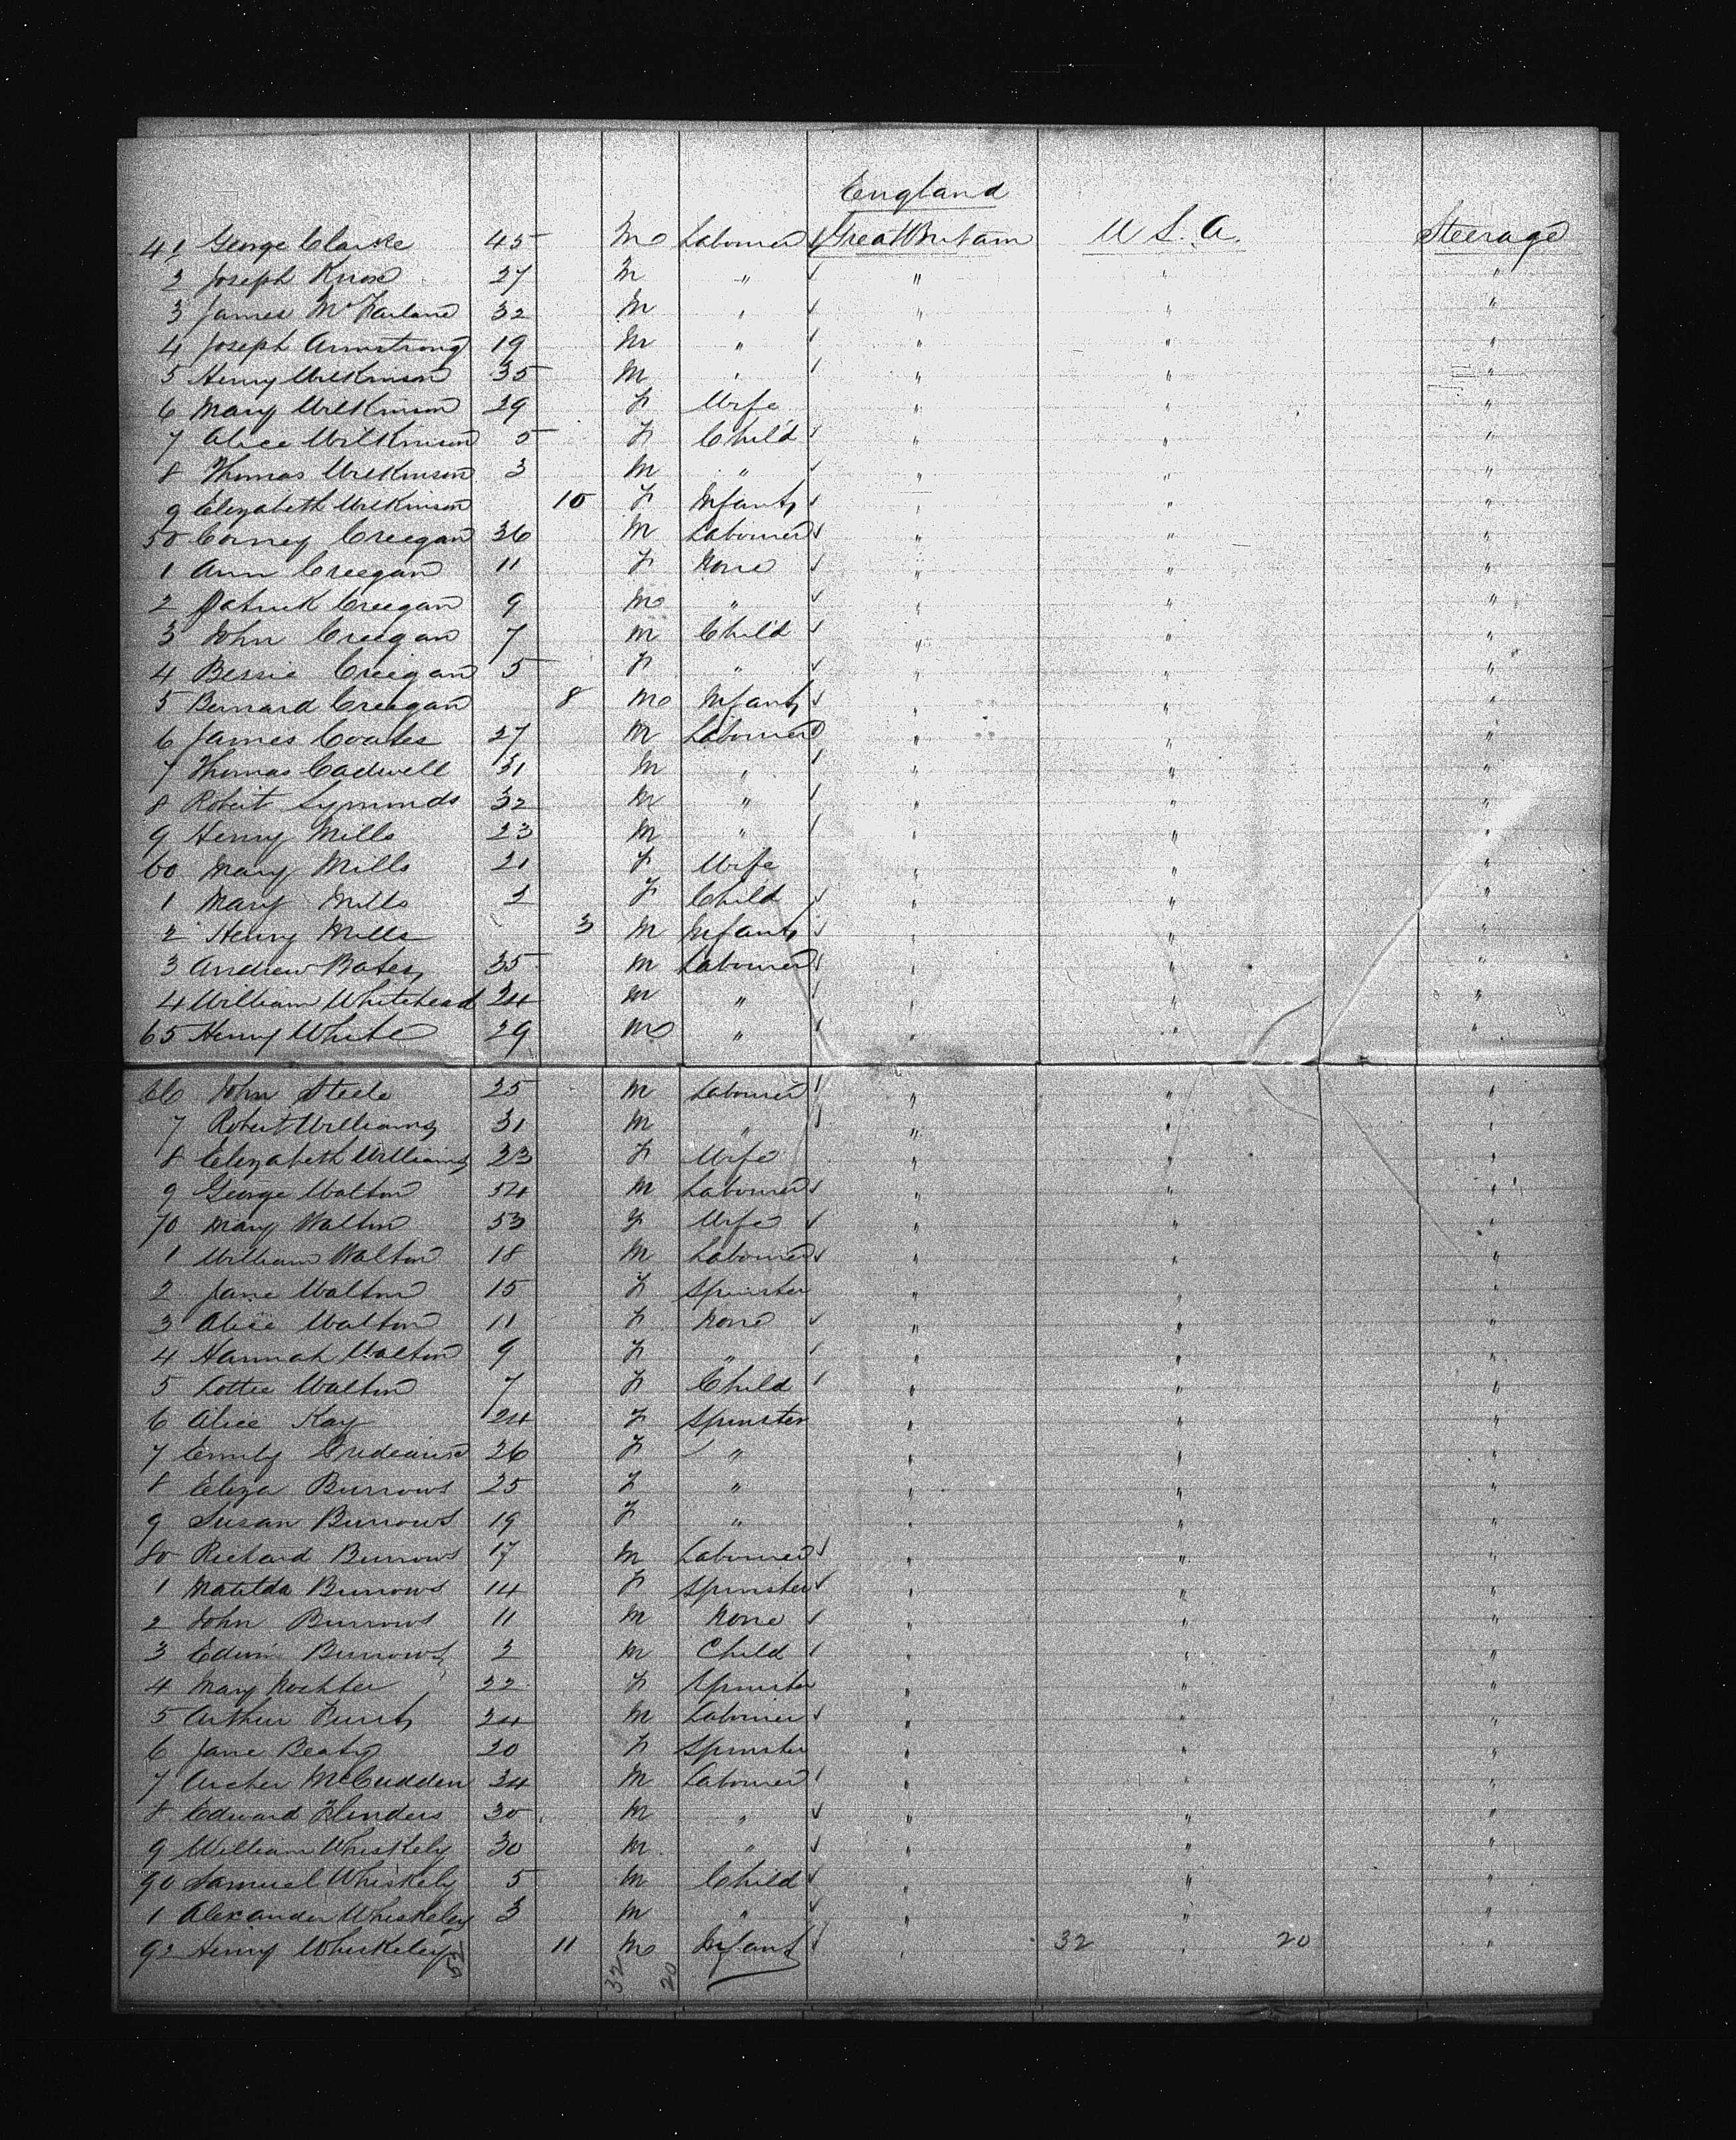 England
41 George Clarke 45 M Labourer Great Britain U.S.A. Steerage
2 Joseph Knox 27 M " " " "
3 James McFarland 32 M " " " "
4 Joseph Armstrong 19 M " " " "
5 Henry Wilkinson 35 M " " " "
6 Mary Wilkinson 29 F Wife " " "
7 Alice Wilkinson 5 F Child " " "
8 Thomas Wilkinson 3 M " " " "
9 Elizabeth Wilkinson 10 F Infant " " "
50 Corney Creegan 36 M Labourer " " "
1 Ann Creegan 11 F None " " "
2 Patrick Creegan 9 M " " " "
3 John Creegan 7 M Child " " "
4 Bessie Creegan 5 F " " " "
5 Bernard Creegan 8 M Infant " " "
6 James Coates 27 M Labourer " " "
7 Thomas Cadwell 31 M " " " "
8 Robert Symonds 32 M " " " "
9 Henry Mills 23 M " " " "
60 Mary Mills 21 F Wife " " "
1 Mary Mills 2 F Child " " "
2 Henry Mills 3 M Infant " " "
3 Andrew Bates 35 M Labourer " " "
4 William Whitehead 24 M " " " "
65 Henry White 29 M " " " "
66 John Steele 25 M Labourer " " "
7 Robert Williams 31 M " " " "
8 Elizabeth Williams 23 F Wife " " "
9 George Walton 54 M Labourer " " "
70 Mary Walton 53 F Wife " " "
1 William Walton 18 M Labourer " " "
2 Jane Walton 15 F Spinster " " "
3 Alice Walton 11 F None " " "
4 Hannah Walton 9 F " " " "
5 Lottie Walton 7 F Child " " "
6 Alice Kay 24 F Spinster " " "
7 Emily 26 F " " " "
8 Eliza Burrows 25 F " " " "
9 Susan Burrows 19 F " " " "
80 Richard Burrows 17 M Labourer " " "
1 Matilda Burrows 14 F Spinster " " "
2 John Burrows 11 M None " " "
3 Edwin Burrows 2 M Child " " "
4 Mary 22 F Spinster " " "
5 Arthur 24 M Labourer " " "
6 Jane Beaty 20 F Spinster " " "
7 Archer McCudden 34 M Labourer " " "
8 Edward Flinders 30 M " " " "
9 William Whiskely 30 M " " " "
90 Samuel Whiskely 5 M Child " " "
1 Alexander Whiskeley 3 M " " " "
92 Henry Whiskeley 11 M Infant " 32 " 20 "
32 20